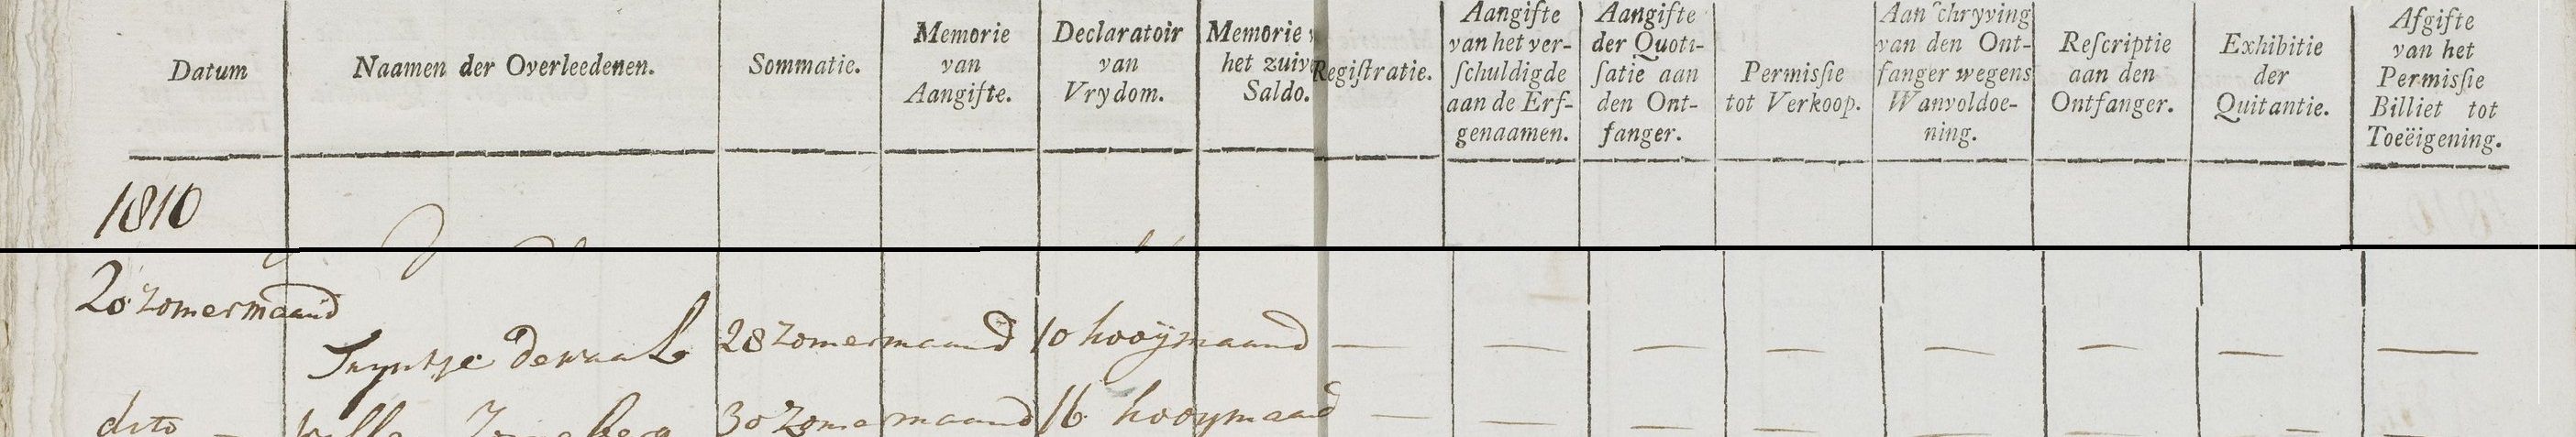 Datum
Naamen der Overleedenen.
Sommatie.
Memorie
van
Aangifte.
Declaratoir
van
Vrydom.
Memorie
het zuiv
Saldo.
Regiſtratie.
Aangifte
van het ver-
ſchuldigde
aan de Erf-
genaamen.
Aangifte
der Quoti-
ſatie aan
den Ont-
fanger.
Permisſie
tot Verkoop.
Aanſchryving
van den Ont-
fanger wegens
Wanvoldoe-
ning.
Reſcriptie
aan den
Ontfanger.
Exhibitie
der
Quitantie.
Afgifte
van het
Permisſie
Billiet tot
Toeëigening.
1810
20 zomermaand
Tryntje de waal 28 zomermaand 10 hooijmaand — — — — — — — —
dito — 30 zomermaand 16 hooymaand — — — — — — — —